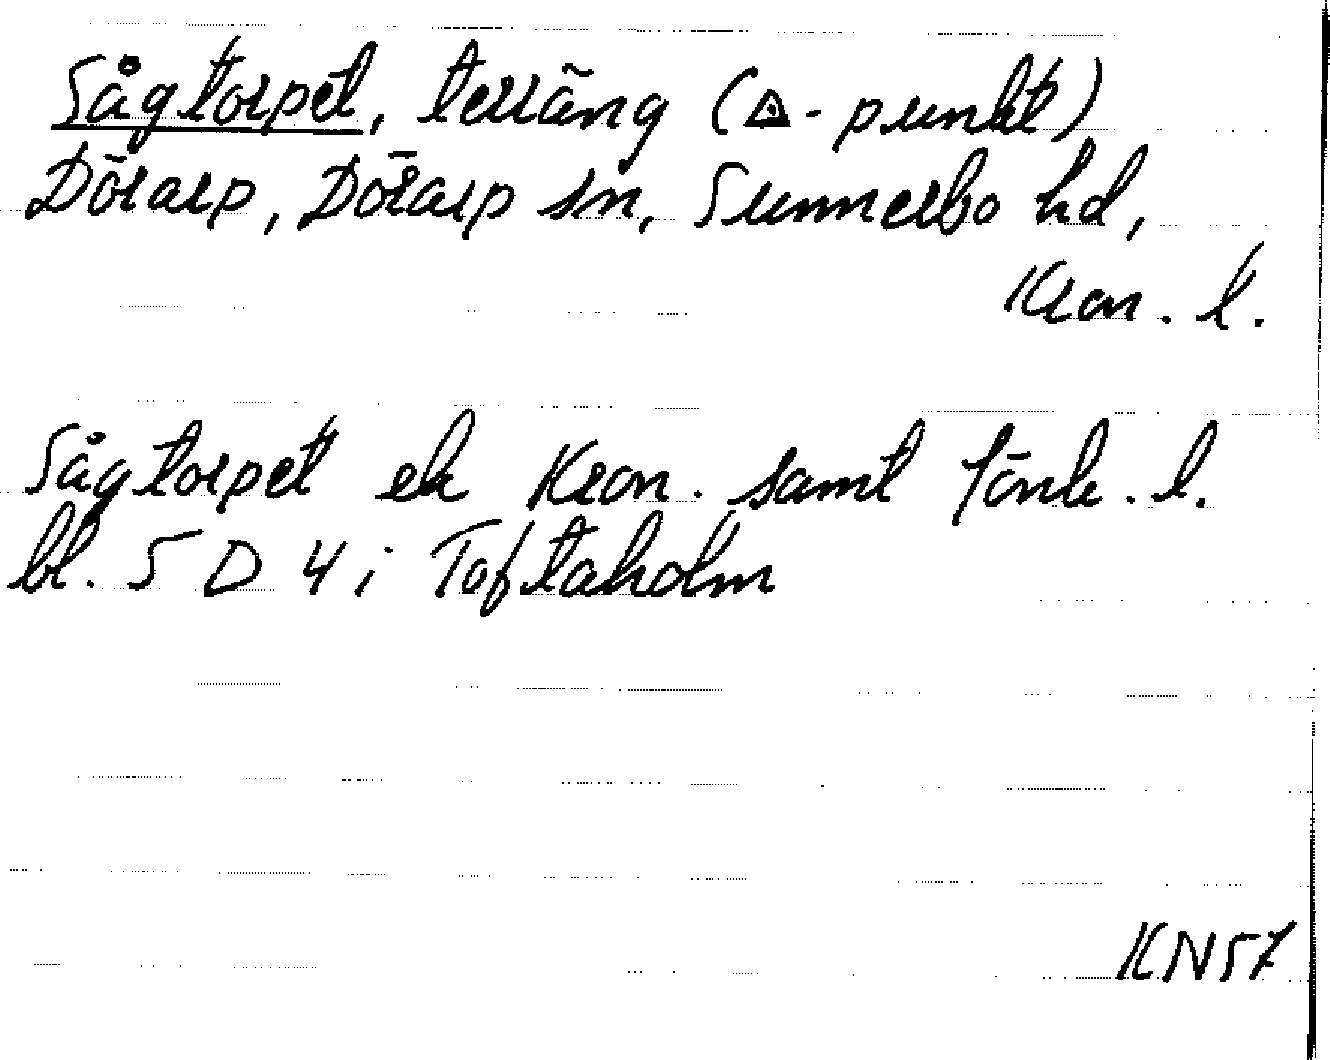 Sågtorpet, terräng (△-punkt)
Dörarp, Dörarp sn, Sunnerbo hd,
Kron. l.
Sågtorpet ek Kron. samt Jönk. l.
bl. 5 D 4 i Toftaholm
KN57